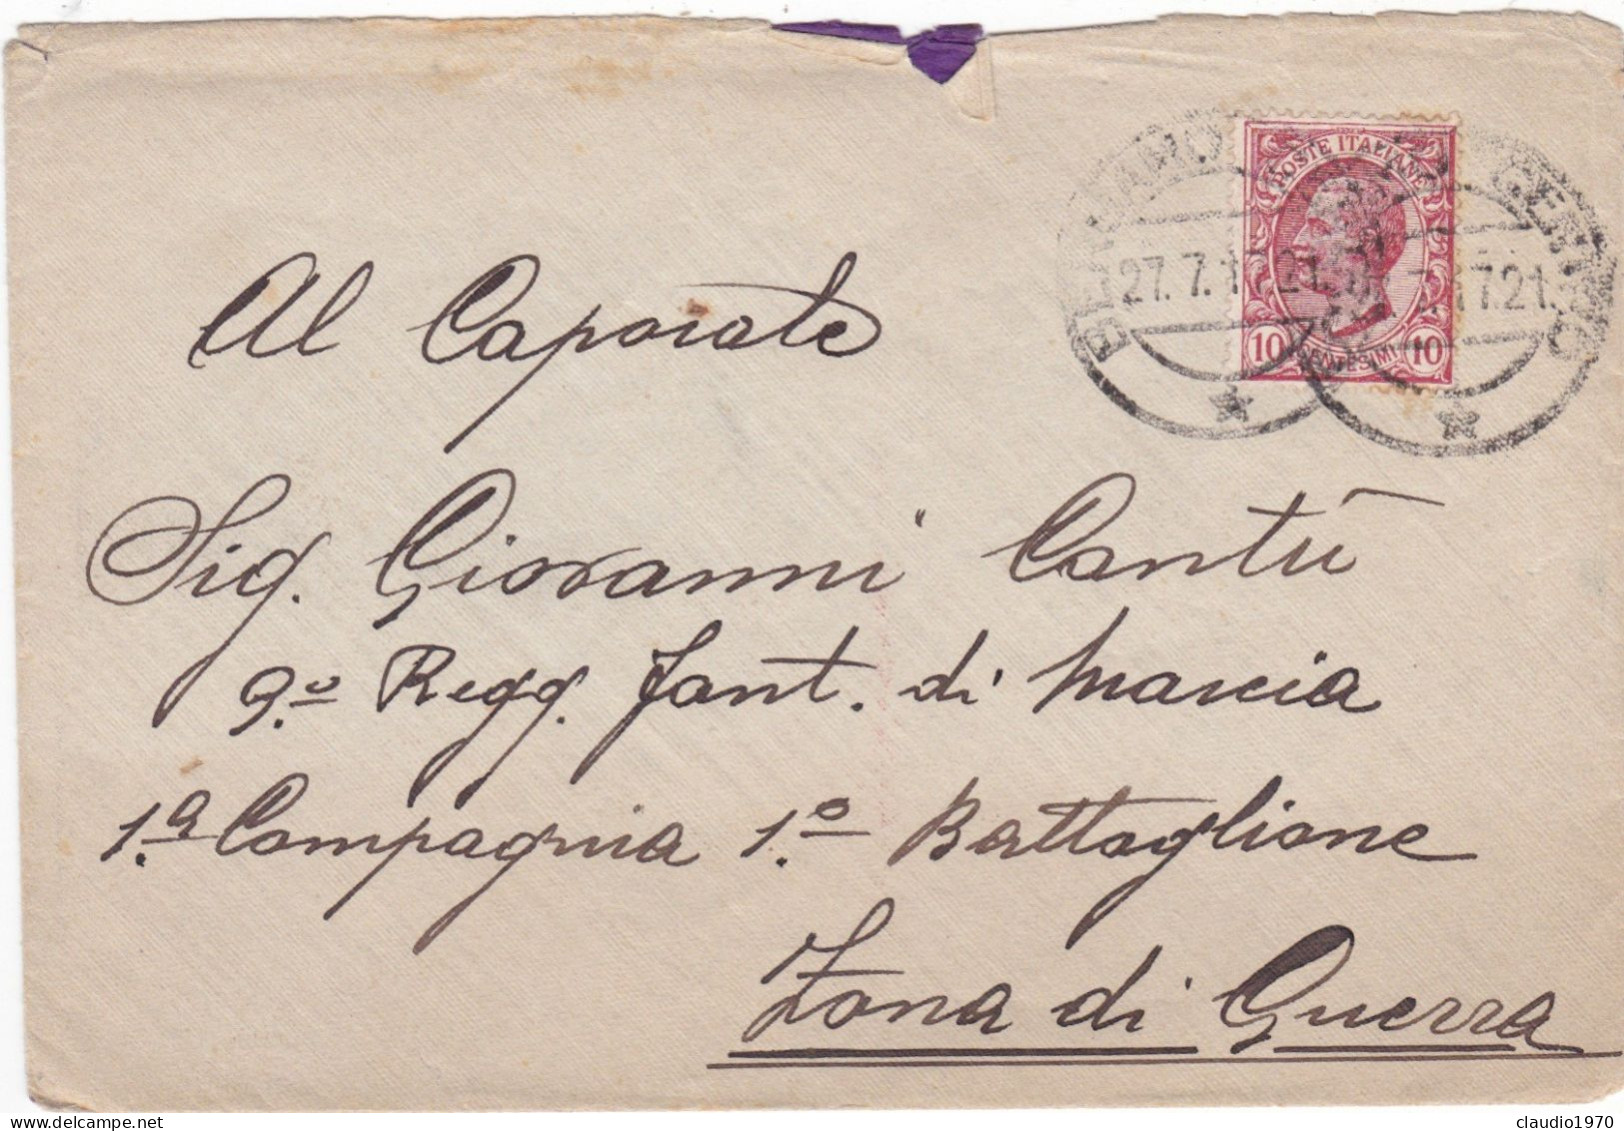 POSTE ITALIANE
27.7.1 21.
7.17.21.
10 CENTESIMI 10
Al Caporale
Sig. Giovanni Cantù
9.º Regg. Fant. di Marcia
1.ª Compagnia 1.º Battaglione
Zona di Guerra
claudio1970